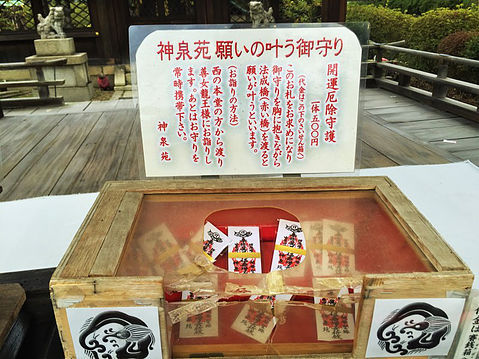 神泉苑 願いの叶う御守り
開運厄除守護
一体 五〇〇円
(代金はこの下のさいせん箱へ)
このお札をお求めになり
御守りを胸に抱きながら
法成橋(赤い橋)を渡ると
願いが叶うといいます。
(お詣りの方法)
西の本堂の方から渡り
善女龍王様にお詣りし
ます。あとはお守りを
常時携帯下さい。
神泉苑